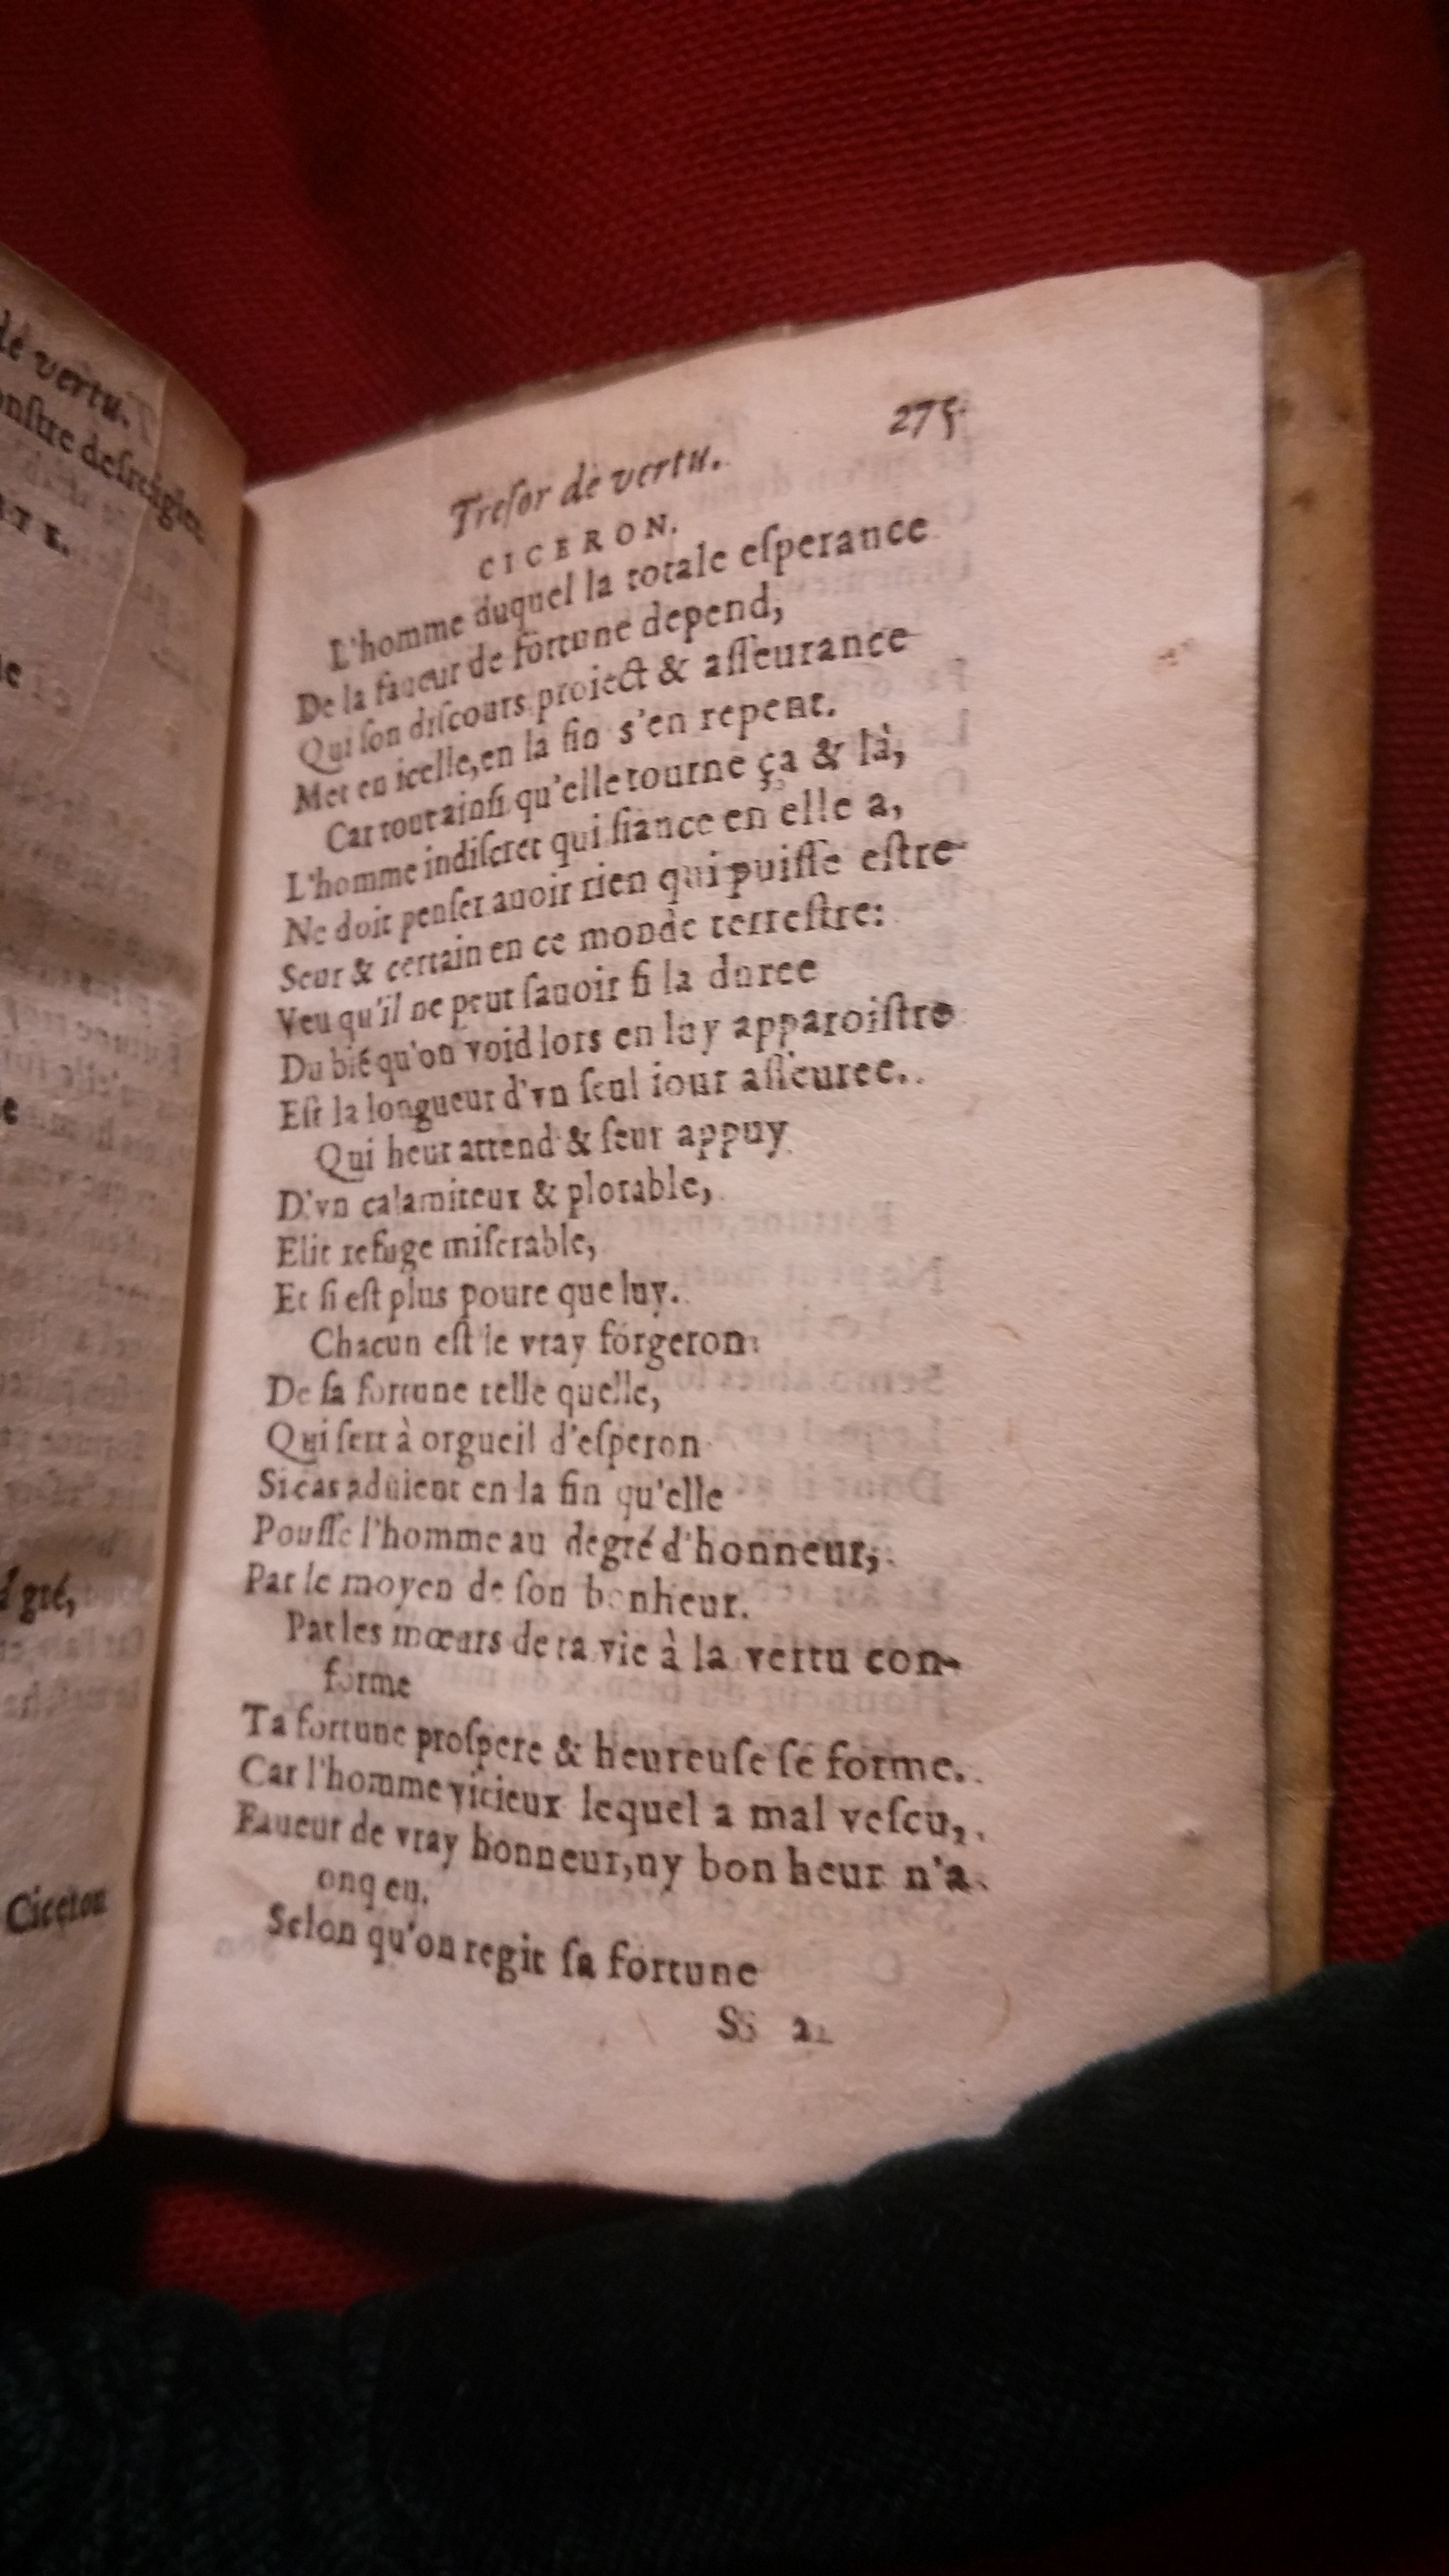 de vertu.
onſtre deſreigler.
le
e
d gré,
Ciceron
275.
Treſor de vertu.
CICERON.
L'homme duquel la totale eſperance
De la faueur de fortune depend,
Qui ſon diſcours proiect & aſſeurance
Met en icelle, en la fin s'en repent.
Car tout ainſi qu'elle tourne ça & là,
L'homme indiſcret qui fiance en elle a,
Ne doit penſer auoir rien qui puiſſe eſtre
Seur & certain en ce monde terreſtre:
Veu qu'il ne peut ſauoir ſi la duree
Du bié qu'on void lors en luy apparoiſtre
Eſt la longueur d'vn ſeul iour aſſeuree.
Qui heur attend & ſeur appuy
D'vn calamiteux & plorable,
Elit refuge miſerable,
Et ſi eſt plus poure que luy.
Chacun eſt le vray forgeron
De ſa fortune telle quelle,
Qui ſert à orgueil d'eſperon
Si cas aduient en la fin qu'elle
Pouſſe l'homme au degré d'honneur,
Par le moyen de ſon bonheur.
Par les mœurs de ta vie à la vertu con-
forme
Ta fortune proſpere & heureuſe ſe forme.
Car l'homme vicieux lequel a mal veſcu,
Faueur de vray honneur, ny bon heur n'a
onq eu.
Selon qu'on regit ſa fortune
Ss 2